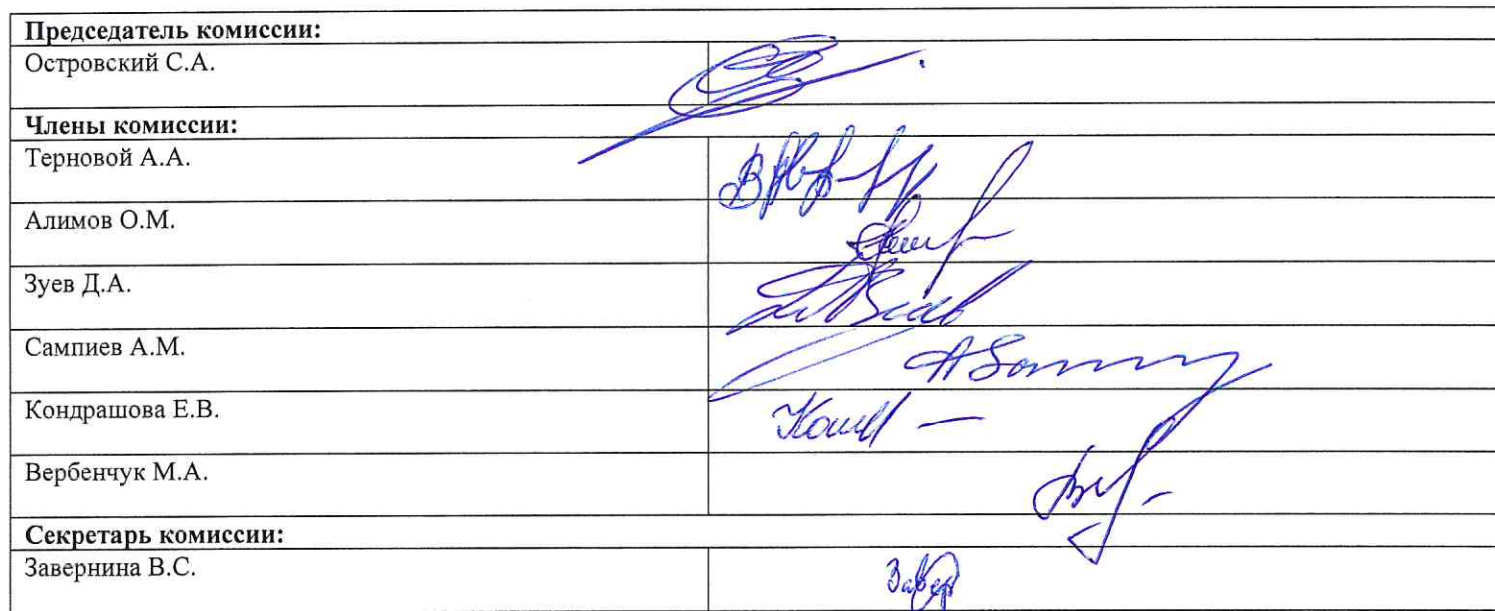 Председатель комиссии:
Островский С.А.
Члены комиссии:
Терновой А.А.
Алимов О.М.
Зуев Д.А.
Сампиев А.М.
Кондрашова Е.В.
Вербенчук М.А.
Секретарь комиссии:
Завернина В.С.